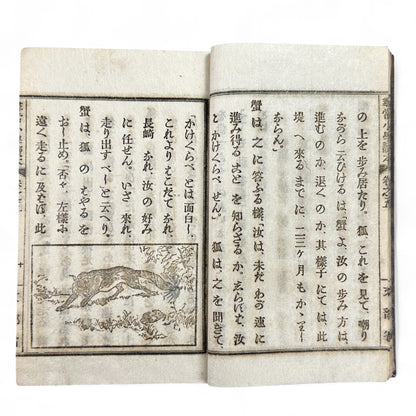 の上を歩み居たり。狐、これを見て、嘲り
ながら云ひけるは、蟹よ、汝の歩み方は、
進むのか、退くのか、其様子にては、此
堤へ來るまでに、二三ヶ月もかゝりし
ならん。
蟹は、之に答ふる樣、汝は、未だ、わが速に
進み得ることを知らざるか、さらば、汝
とかけくらべせん。」狐は、之を聞きて、
「かけくらべとは面白し、
これよりもこだてなれ、
長崎なれ、汝の好み
に任せん、いざ來れ、
走り出すべし」と云へり。
蟹は、狐のはやるを
おし止め、否や、左樣に
遠く走るに及ばず、此